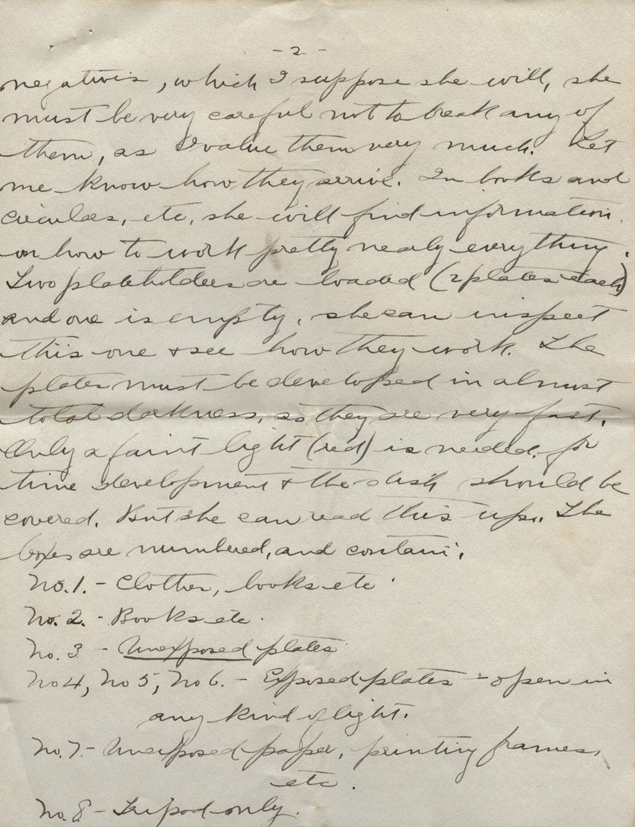 - 2 -
negatives, which I suppose she will, she
must be very careful not to break any of
them, as I value them very much. Let
me know how they arrive. In books and
circulars, etc, she will find information
on how to work pretty nearly everything.
Two plateholders are loaded (2 plates each)
and one is empty, she can inspect
this one + see how they work. The
plates must be developed in almost
total darkness, as they are very fast.
Only a faint light (red) is needed, for
time development + the dish should be
covered. But she can read this up. The
boxes are numbered, and contain:
No. 1. - Clothes, books etc.
No. 2. - Books etc.
No. 3 - Unexposed plates
No 4, No 5, No 6. - Exposed plates - open in
any kind of light.
No. 7. - Unexposed paper, printing frames,
etc.
No. 8 - Tripod only.